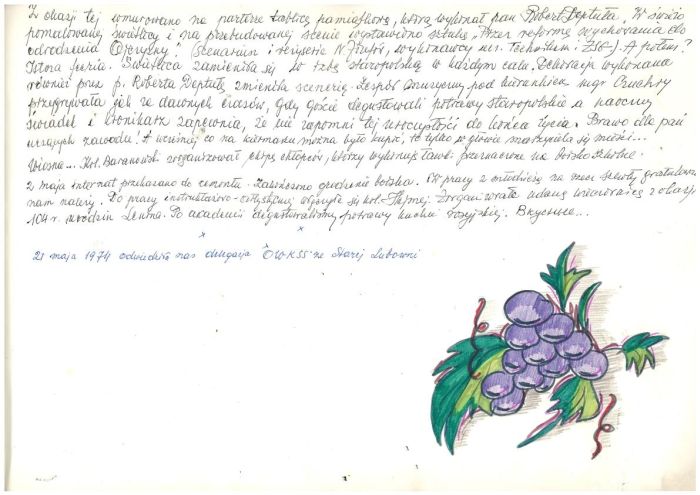 Z okazji tej wmurowano na parterze tablicę pamiątkową, którą wykonał pan Robert Deptuła. W świeżo
pomalowanej świetlicy i na przebudowanej scenie wystawiono sztukę "Przez reformę wychowania do
odrodzenia Ojczyzny" (scenariusz i reżyseria N. wykonawcy ucz. Technikum i ZSG-). A potem?
Istna feeria. Świetlica zamieniła się w izbę staropolską w każdym calu. Dekoracja wykonana
również przez p. Roberta Deptułę zmieniła scenerię. Zespół muzyczny pod kierunkiem mgr Czuchry
przygrywał jak za dawnych czasów, gdy goście degustowali potrawy staropolskie a naoczny
świadek i kronikarz zapewnia, że nie zapomni tej uroczystości do końca życia. Brawo dla pań
uczących zawodu! A wcześniej, co na kiermaszu można było kupić, to tylko w głowie
Wiosna... Kol. Baranowski zorganizował ekipę chłopców, którzy wykonują ławki przeznaczone na boisko szkolne.
2 maja internat przekazano do remontu. Zakończono grodzenie boiska. W pracy z młodzieżą na rzecz szkoły gratulować
nam należy. Do pracy instruktorsko- włączyła się kol. Zorganizowała udaną wieczornicę z okazji
104 r. urodzin Lenina. Po akademii degustowaliśmy potrawy kuchni rosyjskiej. Вкусные...
x x x
21 maja 1974 odwiedziła nas delegacja OWKSS ze Starej Lubowni